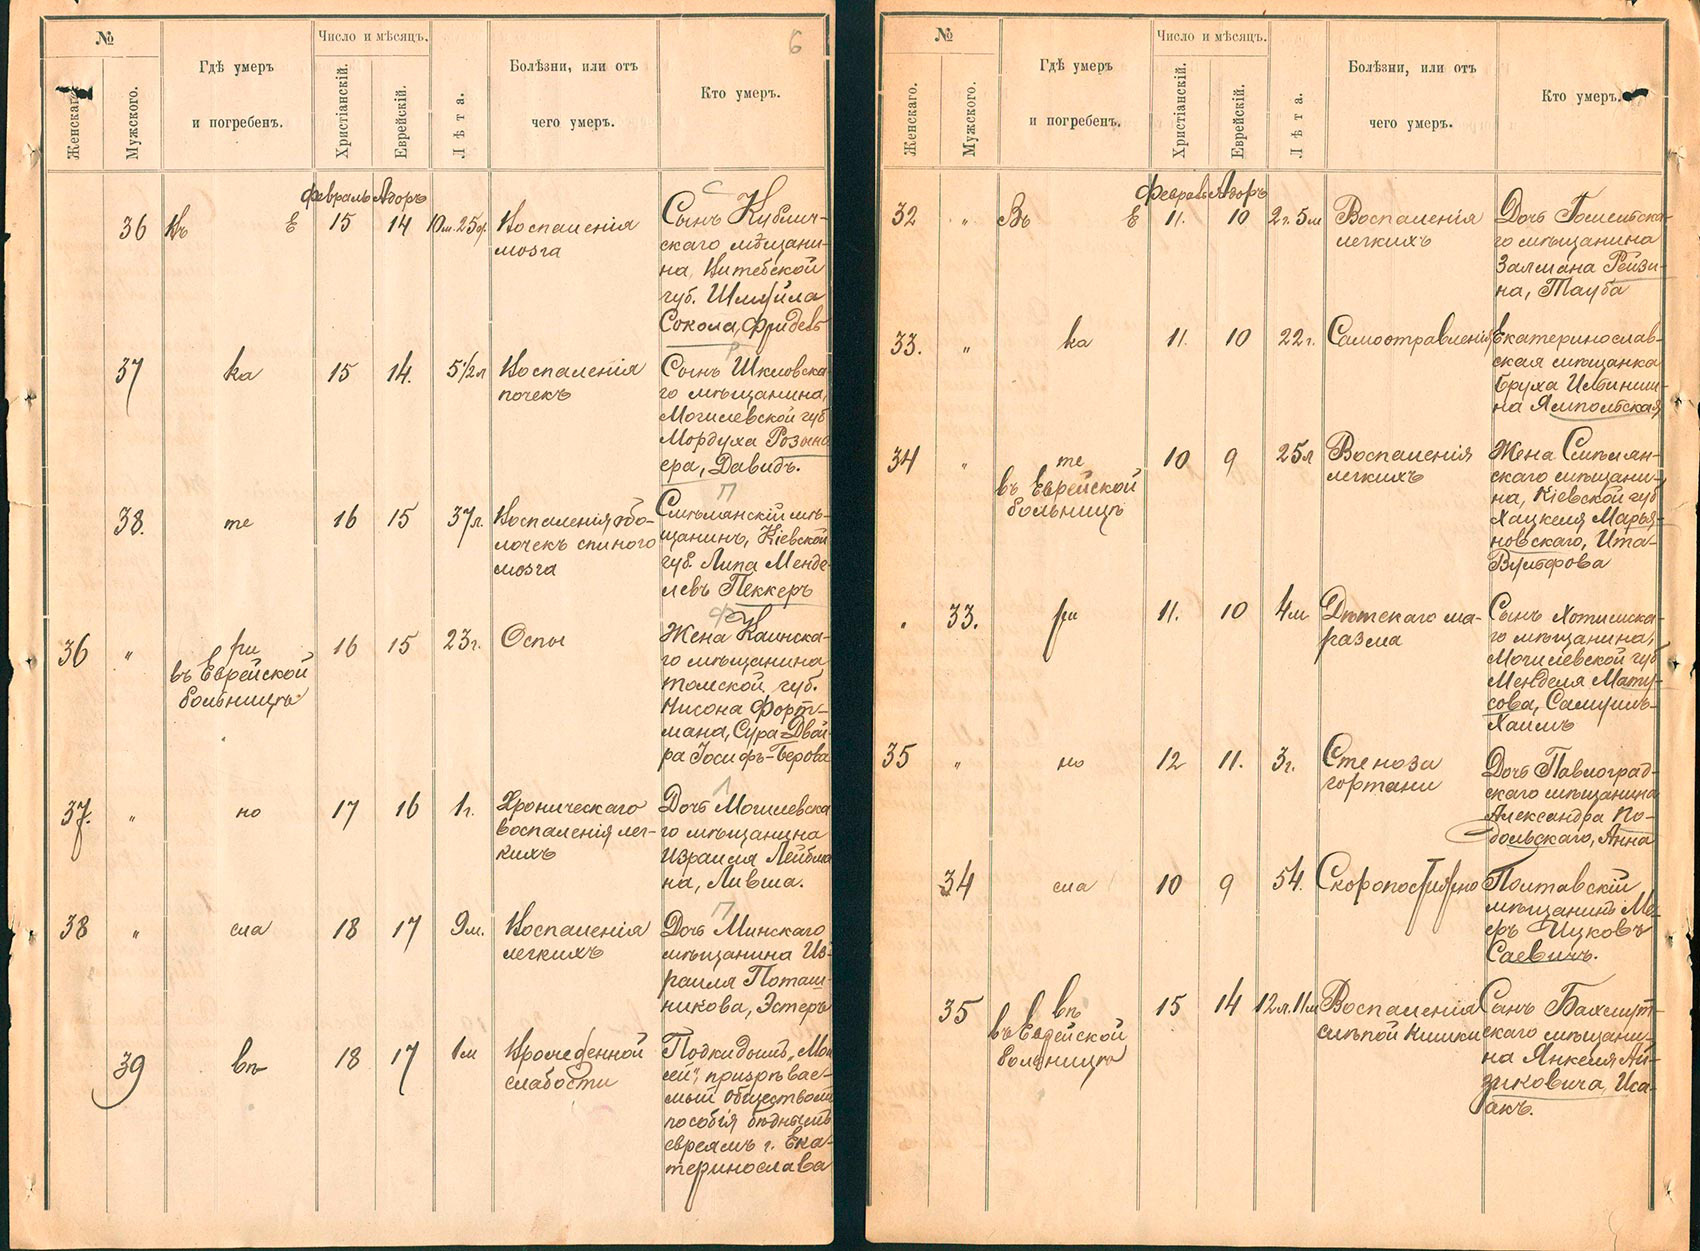 №
Число и мѣсяцъ.
6
Женскаго.
Мужского.
Гдѣ умеръ
и погребенъ.
Христіанскій.
Еврейскій.
Лѣта.
Болѣзни, или отъ
чего умеръ.
Кто умеръ.
Февраль Адоръ
36 Въ Е 15 14 10 м. 25 д. Воспаленія
мозга
Сынъ Кублич-
скаго мѣщани-
на, Витебской
губ. Шмуйла
Сокола, Фридель
37 ка 15 14. 5 1/2 л Воспаленія
почекъ
Сынъ Шкловска-
го мѣщанина,
Могилевской губ
Мордуха Розен
ера, Давидъ.
38. те 16 15 37 л. Воспаленія обо-
лочекъ спиного
мозга
Смѣлянскій мѣ-
щанинъ, Кіевской
губ. Липа Менде-
левъ Пеккеръ
36 " ри
въ Еврейской
больницѣ
16 15 23 г. Оспы
Жена Каинска-
го мѣщанина
томской губ.
Нисона Форт-
мана, Сура-Двой-
ра Іосифъ-Берова
37. " но 17 16 1 г. Хроническаго
воспаленія лег-
кихъ
Дочь Могилевска
го мѣщанина
Израиля Лейбма
на, Ливша.
38 " сла 18 17 9 м. Воспаленія
легкихъ
Дочь Минскаго
мѣщанина Из-
раиля Поташ-
никова, Эстеръ
39 вѣ 18 17 1 м Врожденной
слабости
Подкидышъ „Мои
сей", призрѣвае-
мый обществомъ
пособія бѣднымъ
евреямъ г. Ека-
теринослава
№
Число и мѣсяцъ.
Женскаго.
Мужского.
Гдѣ умеръ
и погребенъ.
Христіанскій.
Еврейскій.
Лѣта.
Болѣзни, или отъ
чего умеръ.
Кто умеръ.
Февраль Адоръ
32 " Въ Е 11. 10 2 г. 5 м Воспаленія
легкихъ
Дочь Гомельска-
го мѣщанина
Залмана Рейзи-
на, Тауба
33. " ка 11. 10 22 г. Самоотравленія
Екатеринослав-
ская мѣщанка
Бруха Ильинич-
на Ямпольская
34 " те
въ Еврейской
больницѣ
10 9 25 л Воспаленія
легкихъ
Жена Смѣлян-
скаго мѣщани-
на, Кіевской губ
Хацкеля Марья-
новскаго, Ита-
Вульфова
" 33. ри 11. 10 4 м Дѣтскаго ма-
разма
Сынъ Хотимска-
го мѣщанина,
Могилевской губ
Менделя Мату-
сова, Самуилъ-
Хаимъ
35 " но 12 11. 3 г. Стеноза
гортани
Дочь Павлоград-
скаго мѣщанина
Александра По-
дольскаго, Анна
34 сла 10 9 54. Скоропостижно
Полтавскій
мѣщанинъ Ме-
еръ Ицковъ
Саевичъ.
35 вѣ
въ Еврейской
больницѣ
15 14 12 л. 11 м Воспаленія
слѣпой кишки
Сынъ Бахмут-
скаго мѣщани-
на Янкеля Ай-
зиковича, Иса-
акъ.